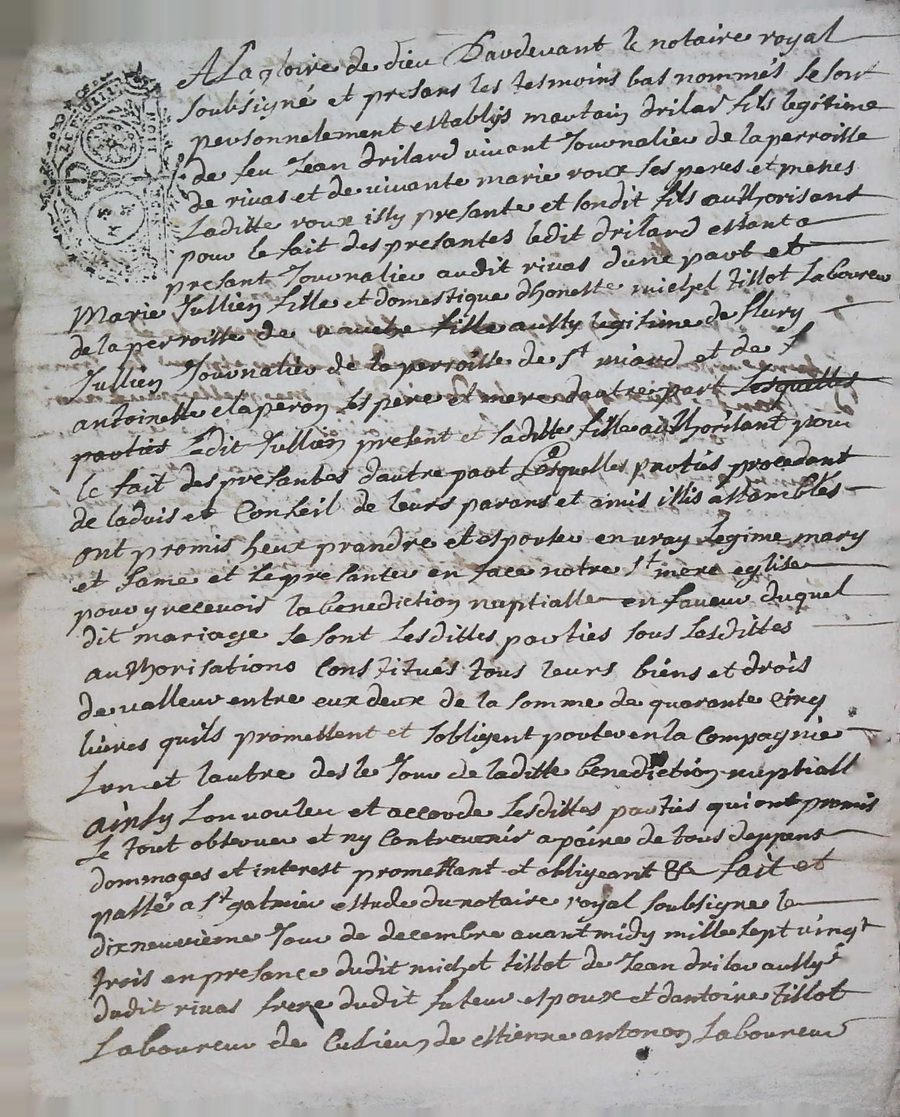 A La gloire de dieu Pardevant le notaire royal
soubsigné et presans les tesmoins bas nommés se sont
personnelement establys martain drilard fils legitime
de feu Jean drilard vivant Journalier de la perroisse
de rivas et de vivante marie roux ses peres et meres
Laditte roux issy presante et sondit fils authorisant
pour le fait des presantes ledit drilard estant a
presant Journalier audit rivas d'une part et
Marie Jullien fille et domestique dhonette michel tillot Laboureur
de la perroisse de fille aussy legitime de flury
Jullien Journalier de la perroisse de St miard et de f
antoinette claperon ses pere et mere dautre part Lesquelles
parties Ledit Jullien present et saditte fille authorisant pour
le fait des presantes d'autre part Lesquelles parties procedant
de ladvis et Conseil de leurs parans et amis issis assamblés
ont promis heux prandre et espouser en vray Legime mary
et fame et se presanter en face notre St mere eglise
pour y recevois la benediction nuptialle en faveur duquel
dit mariage se sont Lesdittes parties sous Lesdittes
authorisations Constitués tous leurs biens et drois
de valleur entre eux deux de la somme de quarante Cinq
livres quils promettent et sobligent porter en la Compagnie
Lun et lautre des le Jour de laditte benediction nuptiall
ainsy Lont vouleu et accorde Lesdittes parties qui ont promis
Le tout observer et ny Contrevenir a paine de tous deppans
dommages et interest promettant et obligeant &c fait et
passé a St galmier estude du notaire royal soubsigne le
dixneuvieme Jour de decembre avant midy mille sept vingt
trois en presance dudit michel tillot de Jean drilar aussy
dudit rivas frere dudit futeur espoux et dantoine tillot
Laboureur de Culieu, de estienne antonon Laboureur